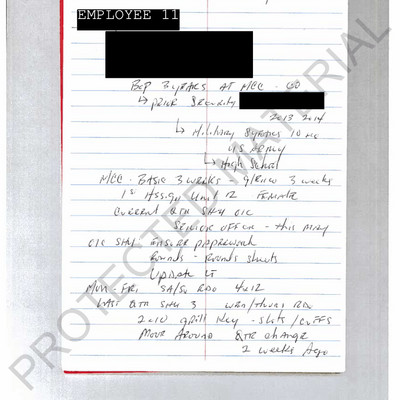 EMPLOYEE 11
BOP 3 years AT MCC - CO
↳ prior Security
2013 2014
↳ Military 8 years 10 mo
US Army
↳ High School
MCC - BASIC 3 weeks - 3 weeks
1st Assign Unit 2 Female
Current QTR SHU OIC
Senior Officer - this May
OIC SHU ensure paperwork
Rounds - Rounds sheets
Update LT
Mon - Fri SA/SU RDO 4x12
Last QTR SHU 3 Wed/Thurs RDO
grill key - slots / cuffs
Move Around QTR change
2 weeks Ago
PROTECTED MATERIAL